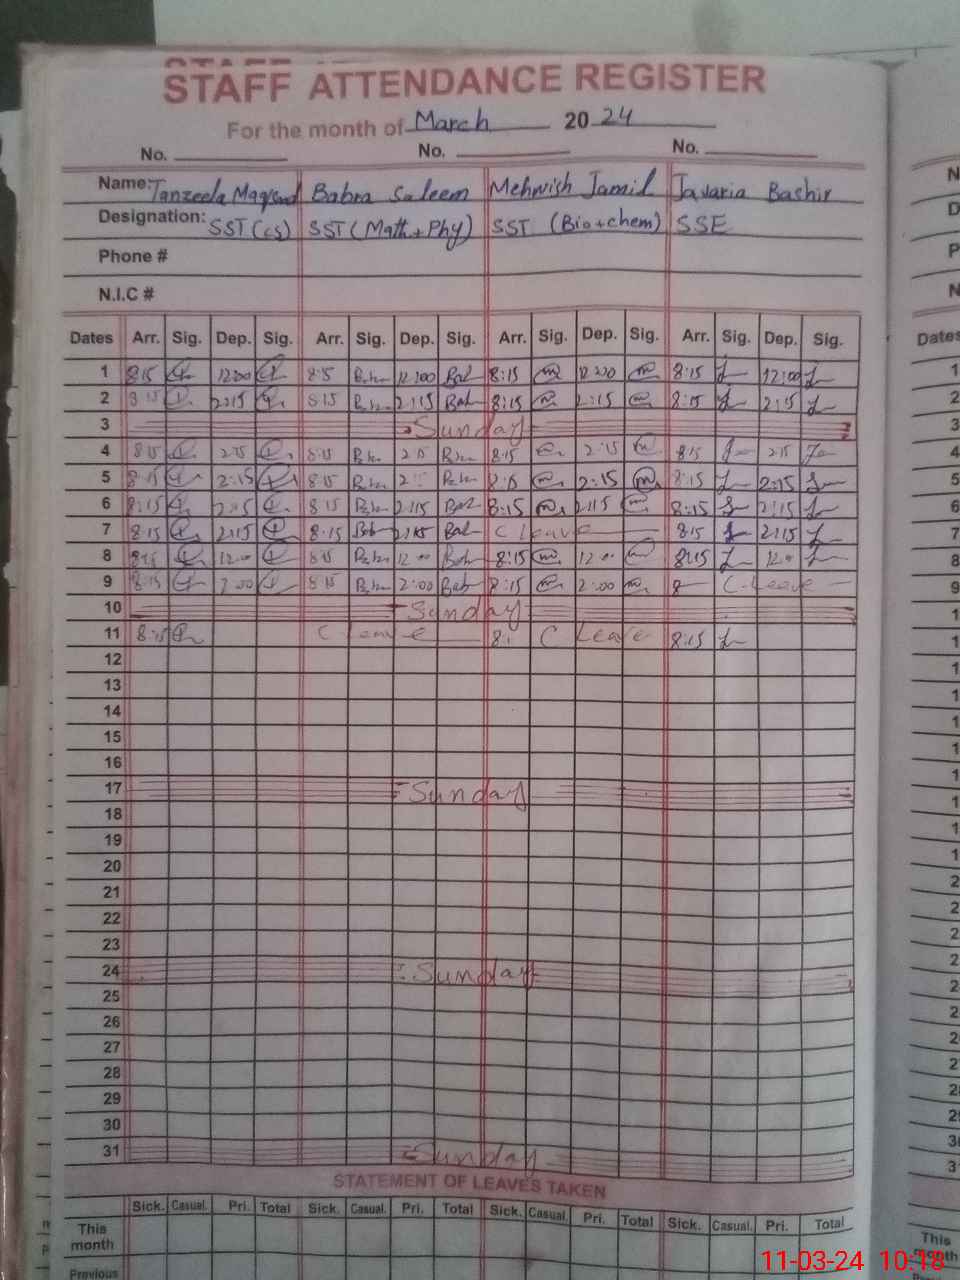 STAFF ATTENDANCE REGISTER
For the month of March 20 24
No. No. No.
Name: Tanzeela Maqsood Babra Saleem Mehwish Jamil Javaria Bashir
Designation: SST (CS) SST (Math + Phy) SST (Bio + chem) SSE
Phone #
N.I.C #
Dates Arr. Sig. Dep. Sig. Arr. Sig. Dep. Sig. Arr. Sig. Dep. Sig. Arr. Sig. Dep. Sig. Dates
1 8:15 12:00 8:15 12:00 8:15 12:00 8:15 12:00
2 8:15 2:15 8:15 2:15 8:15 2:15 8:15 2:15
3 Sunday
4 8:15 2:15 8:15 2:15 8:15 2:15 8:15 2:15
5 8:15 2:15 8:15 8:15 2:15 8:15 2:15
6 8:15 2:15 8:15 2:15 8:15 2:15 8:15 2:15
7 8:15 2:15 8:15 2:15 C Leave 8:15 2:15
8 8:15 12:00 8:15 12:00 8:15 12:00 8:15 12:00
9 8:15 2:00 8:15 2:00 8:15 2:00 8 C-Leave
10 Sunday
11 8:15 C leave 8:1 C Leave 8:15
12
13
14
15
16
17 Sunday
18
19
20
21
22
23
24 Sunday
25
26
27
28
29
30
31 Sunday
STATEMENT OF LEAVES TAKEN
Sick. Casual. Pri. Total Sick. Casual. Pri. Total Sick. Casual. Pri. Total Sick. Casual. Pri. Total
This month This month
Previous
11-03-24 10:18